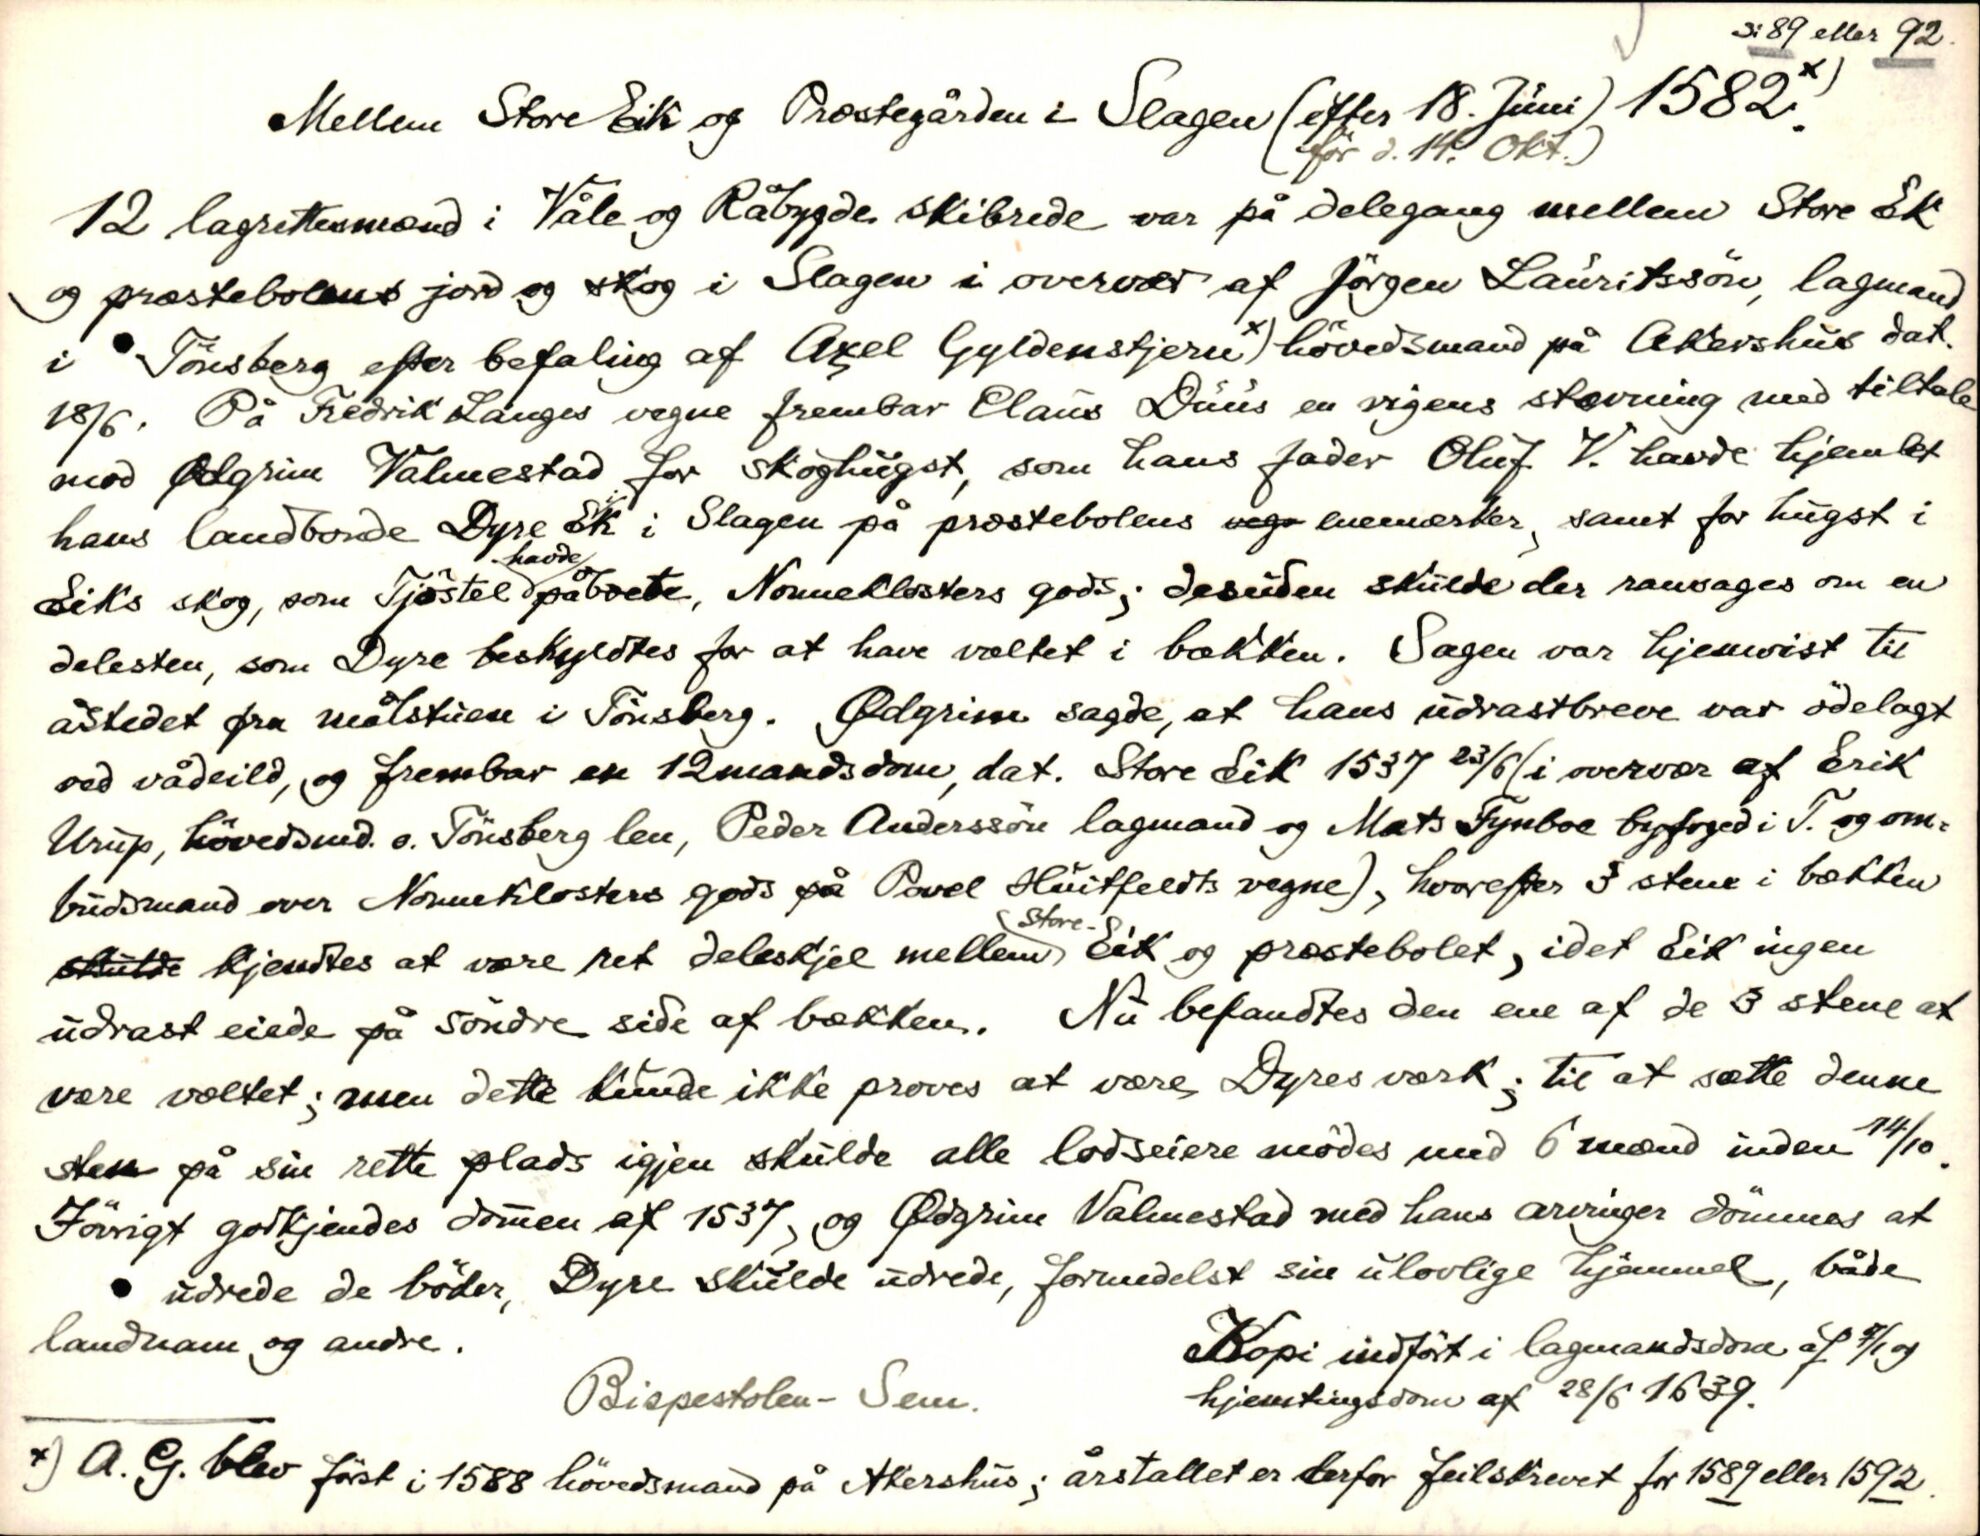 ɔ: 89 eller 92.
Mellem Store Eik og Præstegården i Slagen (efter 18. Juni) 1582. x)
(før d. 14. Okt.)
12 lagrettesmænd i Våle og Råbygde skibrede var på delegang mellem Store Ek
og præstebolens jord og skog i Slagen i overvær af Jörgen Lauritssön, lagmand
i Tönsberg efter befaling af Axel Gyldenstjern x) hövedsmand på Akershus dat.
18/6. På Fredrik Langes vegne frembar Claus Duus en rigens stævning med tiltale
mod Ødgrim Valmestad for skoghugst, som hans fader Oluf V. havde hjemlet
hans landbonde Dyre Ek i Slagen på præstebolens enemærker, samt for hugst i
Eiks skog, som Tjöstel havde påboete, Nonneklosters gods; desuden skulde der ransages om en
delesten, som Dyre beskyldtes for at have væltet i bækken. Sagen var hjemvist til
åstedet fra målstuen i Tönsberg. Ødgrim sagde, at hans udrastbreve var ödelagt
ved vådeild, og frembar en 12mandsdom, dat. Store Eik 1537 23/6 (i overvær af Erik
Urup, hövedsmd. o. Tönsberg len, Peder Anderssön lagmand og Mats Fynboe byfoged i T. og om-
budsmand over Nonneklosters gods på Povel Huitfeldts vegne), hvorefter 3 stene i bækken
skulde kjendtes at være ret deleskjel mellem Store-Eik og præstebolet, idet Eik ingen
udrast eiede på söndre side af bækken. Nu befandtes den ene af de 3 stene at
være væltet; men dette kunde ikke proves at være Dyres værk; til at sætte denne
sten på sin rette plads igjen skulde alle lodseiere mödes med 6 mænd inden 14/10.
Iövrigt godkjendes dommen af 1537, og Ødgrim Valmestad med hans arvinger dömmes at
udrede de böder, Dyre skulde udrede, formedelst sin ulovlige hjemmel, både
landnam og andre.
Kopi indfört i lagmandsdom af 7/1 og
hjemtingsdom af 28/6 1639.
Bispestolen - Sem.
x) A. G. blev först i 1588 hövedsmand på Akershus; årstallet er derfor feilskrevet for 1589 eller 1592.